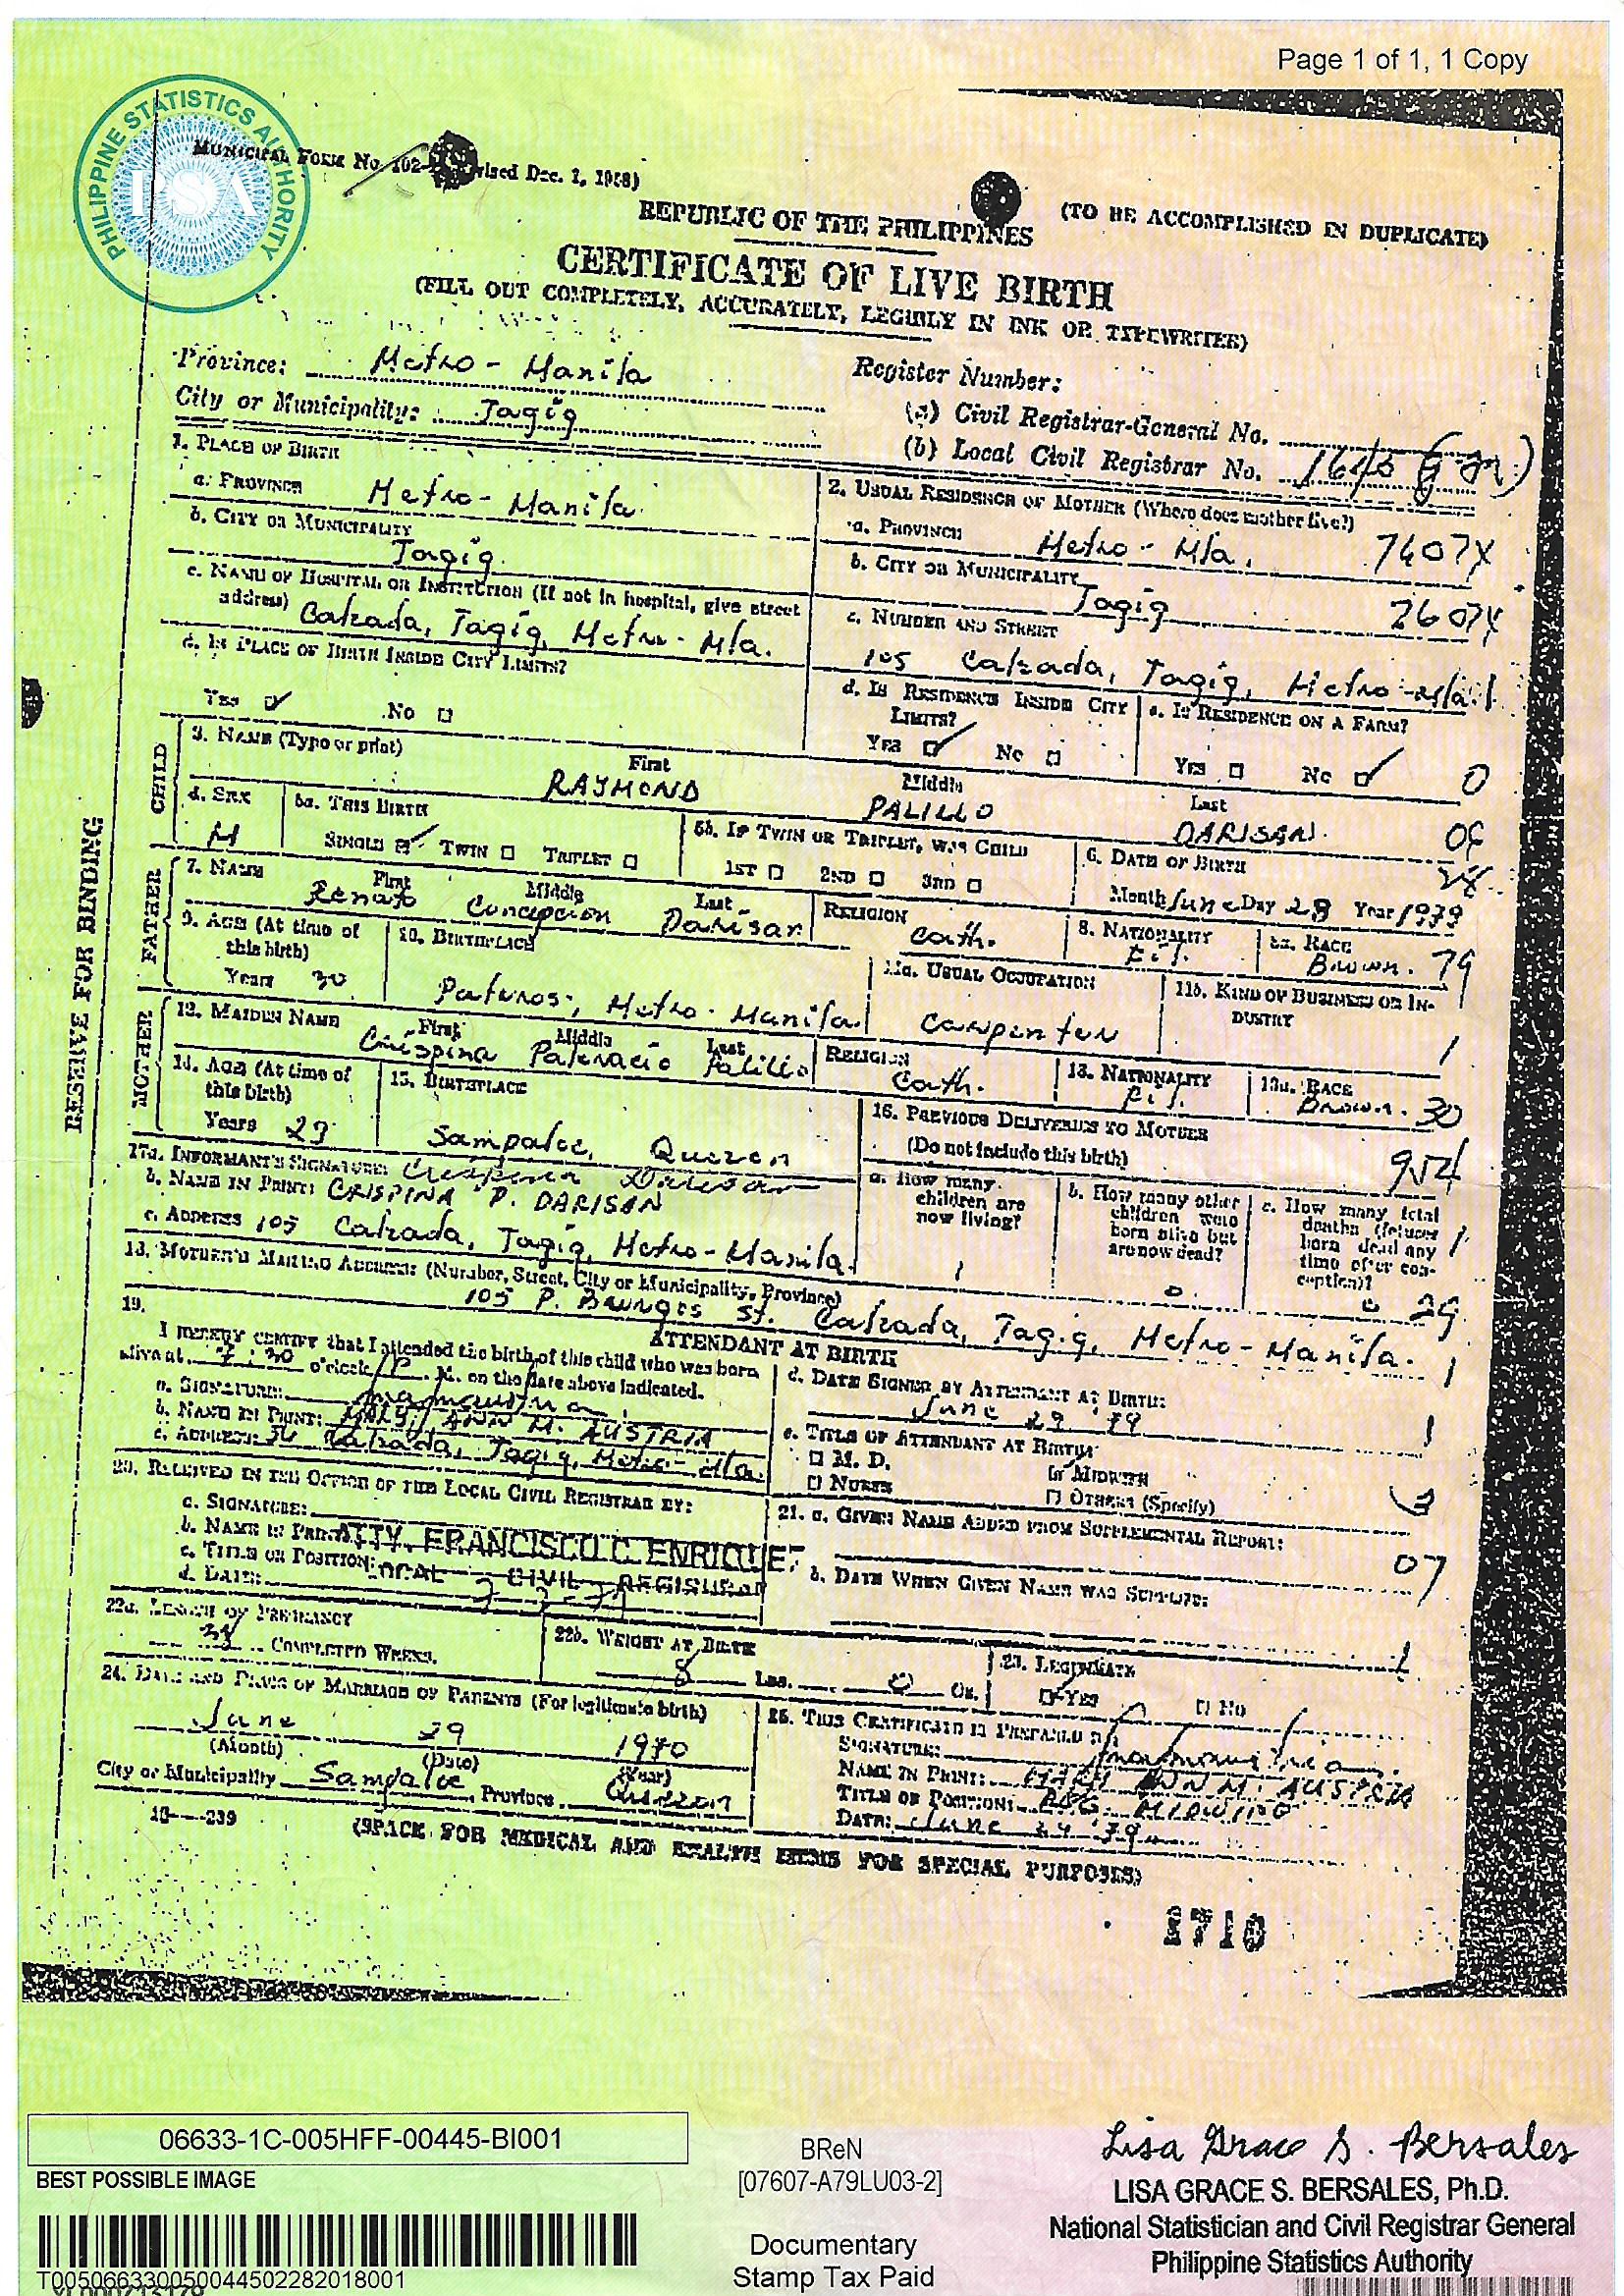 Page 1 of 1, 1 Copy
PHILIPPINE STATISTICS AUTHORITY
PSA
MUNICIPAL FORM No. 102- vised Dec. 1, 1958)
REPUBLIC OF THE PHILIPPINES
(TO BE ACCOMPLISHED IN DUPLICATE)
CERTIFICATE OF LIVE BIRTH
(FILL OUT COMPLETELY, ACCURATELY, LEGIBLY IN INK OR TYPEWRITER)
Province: Metro - Manila
Register Number:
City or Municipality: Tagig
(a) Civil Registrar-General No.
(b) Local Civil Registrar No.
1. PLACE OF BIRTH
a. PROVINCE Metro - Manila
b. CITY OR MUNICIPALITY
Tagig
c. NAME OF HOSPITAL OR INSTITUTION (If not in hospital, give street
address) Calzada, Tagig, Metro - Mla.
d. IS PLACE OF BIRTH INSIDE CITY LIMITS?
YES NO
2. USUAL RESIDENCE OF MOTHER (Where does mother live?)
a. PROVINCE Metro - Mla. 7607X
b. CITY OR MUNICIPALITY
Tagig 7607X
c. NUMBER AND STREET
105 Calzada, Tagig, Metro-Mla.
d. IS RESIDENCE INSIDE CITY
LIMITS?
YES NO
e. IS RESIDENCE ON A FARM?
YES NO 0
CHILD
3. NAME (Type or print)
First Middle Last
RAYMOND PALILLO DARISAN
4. SEX
M
5a. THIS BIRTH
SINGLE TWIN TRIPLET
5b. IF TWIN OR TRIPLET, WAS CHILD
1ST 2ND 3RD
6. DATE OF BIRTH
Month June Day 28 Year 1979
FATHER
7. NAME First Middle Last
Renato Concepcion Darisan
RELIGION
Cath.
8. NATIONALITY
Fil.
8a. RACE
Brown. 79
9. AGE (At time of
this birth)
Years 30
10. BIRTHPLACE
Pateros, Metro - Manila
11a. USUAL OCCUPATION
Carpenter
11b. KIND OF BUSINESS OR IN-
DUSTRY
1
MOTHER
12. MAIDEN NAME First Middle Last
Crispina Palillo
RELIGION
Cath.
13. NATIONALITY
Fil.
13a. RACE
Brown. 30
14. AGE (At time of
this birth)
Years 29
15. BIRTHPLACE
Sampaloc, Quezon
16. PREVIOUS DELIVERIES TO MOTHER
(Do not include this birth) 954
a. How many
children are
now living?
1
b. How many other
children were
born alive but
are now dead?
0
c. How many fetal
deaths (fetuses
born dead any
time after con-
ception)?
0 29
17a. INFORMANT'S SIGNATURE: Crispina Darisan
b. NAME IN PRINT: CRISPINA P. DARISAN
c. ADDRESS 105 Calzada, Tagig, Metro-Manila.
18. MOTHER'S MAILING ADDRESS: (Number, Street, City or Municipality, Province)
105 P. Burgos St. Calzada, Tagig, Metro-Manila. 1
19. ATTENDANT AT BIRTH
I HEREBY CERTIFY that I attended the birth of this child who was born
alive at 7:30 o'clock P. M. on the date above indicated.
a. SIGNATURE:
b. NAME IN PRINT: MARY ANN M. AUSTRIA
c. ADDRESS: Calzada, Tagig, Metro-Mla.
d. DATE SIGNED BY ATTENDANT AT BIRTH:
June 29 '79
e. TITLE OF ATTENDANT AT BIRTH:
M. D. MIDWIFE
NURSE OTHERS (Specify) 3
20. RECEIVED IN THE OFFICE OF THE LOCAL CIVIL REGISTRAR BY:
a. SIGNATURE:
b. NAME IN PRINT: ATTY. FRANCISCO C. ENRIQUEZ
c. TITLE OR POSITION: LOCAL CIVIL REGISTRAR
d. DATE:
21. a. GIVEN NAME ADDED FROM SUPPLEMENTAL REPORT:
07
b. DATE WHEN GIVEN NAME WAS SUPPLIED:
22a. LENGTH OF PREGNANCY
COMPLETED WEEKS.
22b. WEIGHT AT BIRTH
8 LBS. 0 OZ.
23. LEGITIMATE
YES NO
24. DATE AND PLACE OF MARRIAGE OF PARENTS (For legitimate birth)
June 29 1970
(Month) (Date) (Year)
City or Municipality Sampaloc Province Quezon
25. THIS CERTIFICATE IS PREPARED BY:
SIGNATURE:
NAME IN PRINT: MARY ANN M. AUSTRIA
TITLE OR POSITION: REG. MIDWIFE
DATE: June 29 '79
(SPACE FOR MEDICAL AND HEALTH ITEMS FOR SPECIAL PURPOSES)
1710
RESERVE FOR BINDING
06633-1C-005HFF-00445-BI001
BEST POSSIBLE IMAGE
T005066330050044502282018001
BReN
[07607-A79LU03-2]
Documentary
Stamp Tax Paid
Lisa Grace S. Bersales
LISA GRACE S. BERSALES, Ph.D.
National Statistician and Civil Registrar General
Philippine Statistics Authority